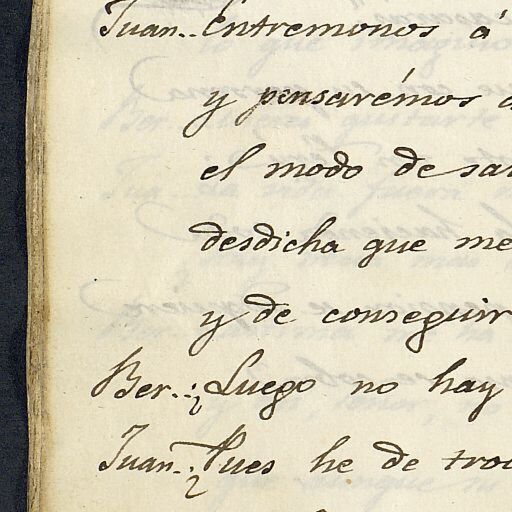 Juan.. Entremonos á
y pensarémos
el modo de
desdicha que me
y de conseguir
Ber..¿ Luego no hay
Juan..¿ Pues he de